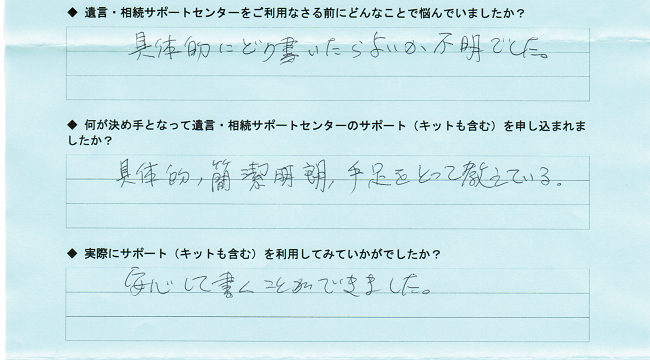 ◆ 遺言・相続サポートセンターをご利用なさる前にどんなことで悩んでいましたか？
具体的にどう書いたらよいか不明でした。
◆ 何が決め手となって遺言・相続サポートセンターのサポート（キットも含む）を申し込まれま
したか？
具体的，簡潔明朗，手足をとって教えている。
◆ 実際にサポート（キットも含む）を利用してみていかがでしたか？
安心して書くことができました。